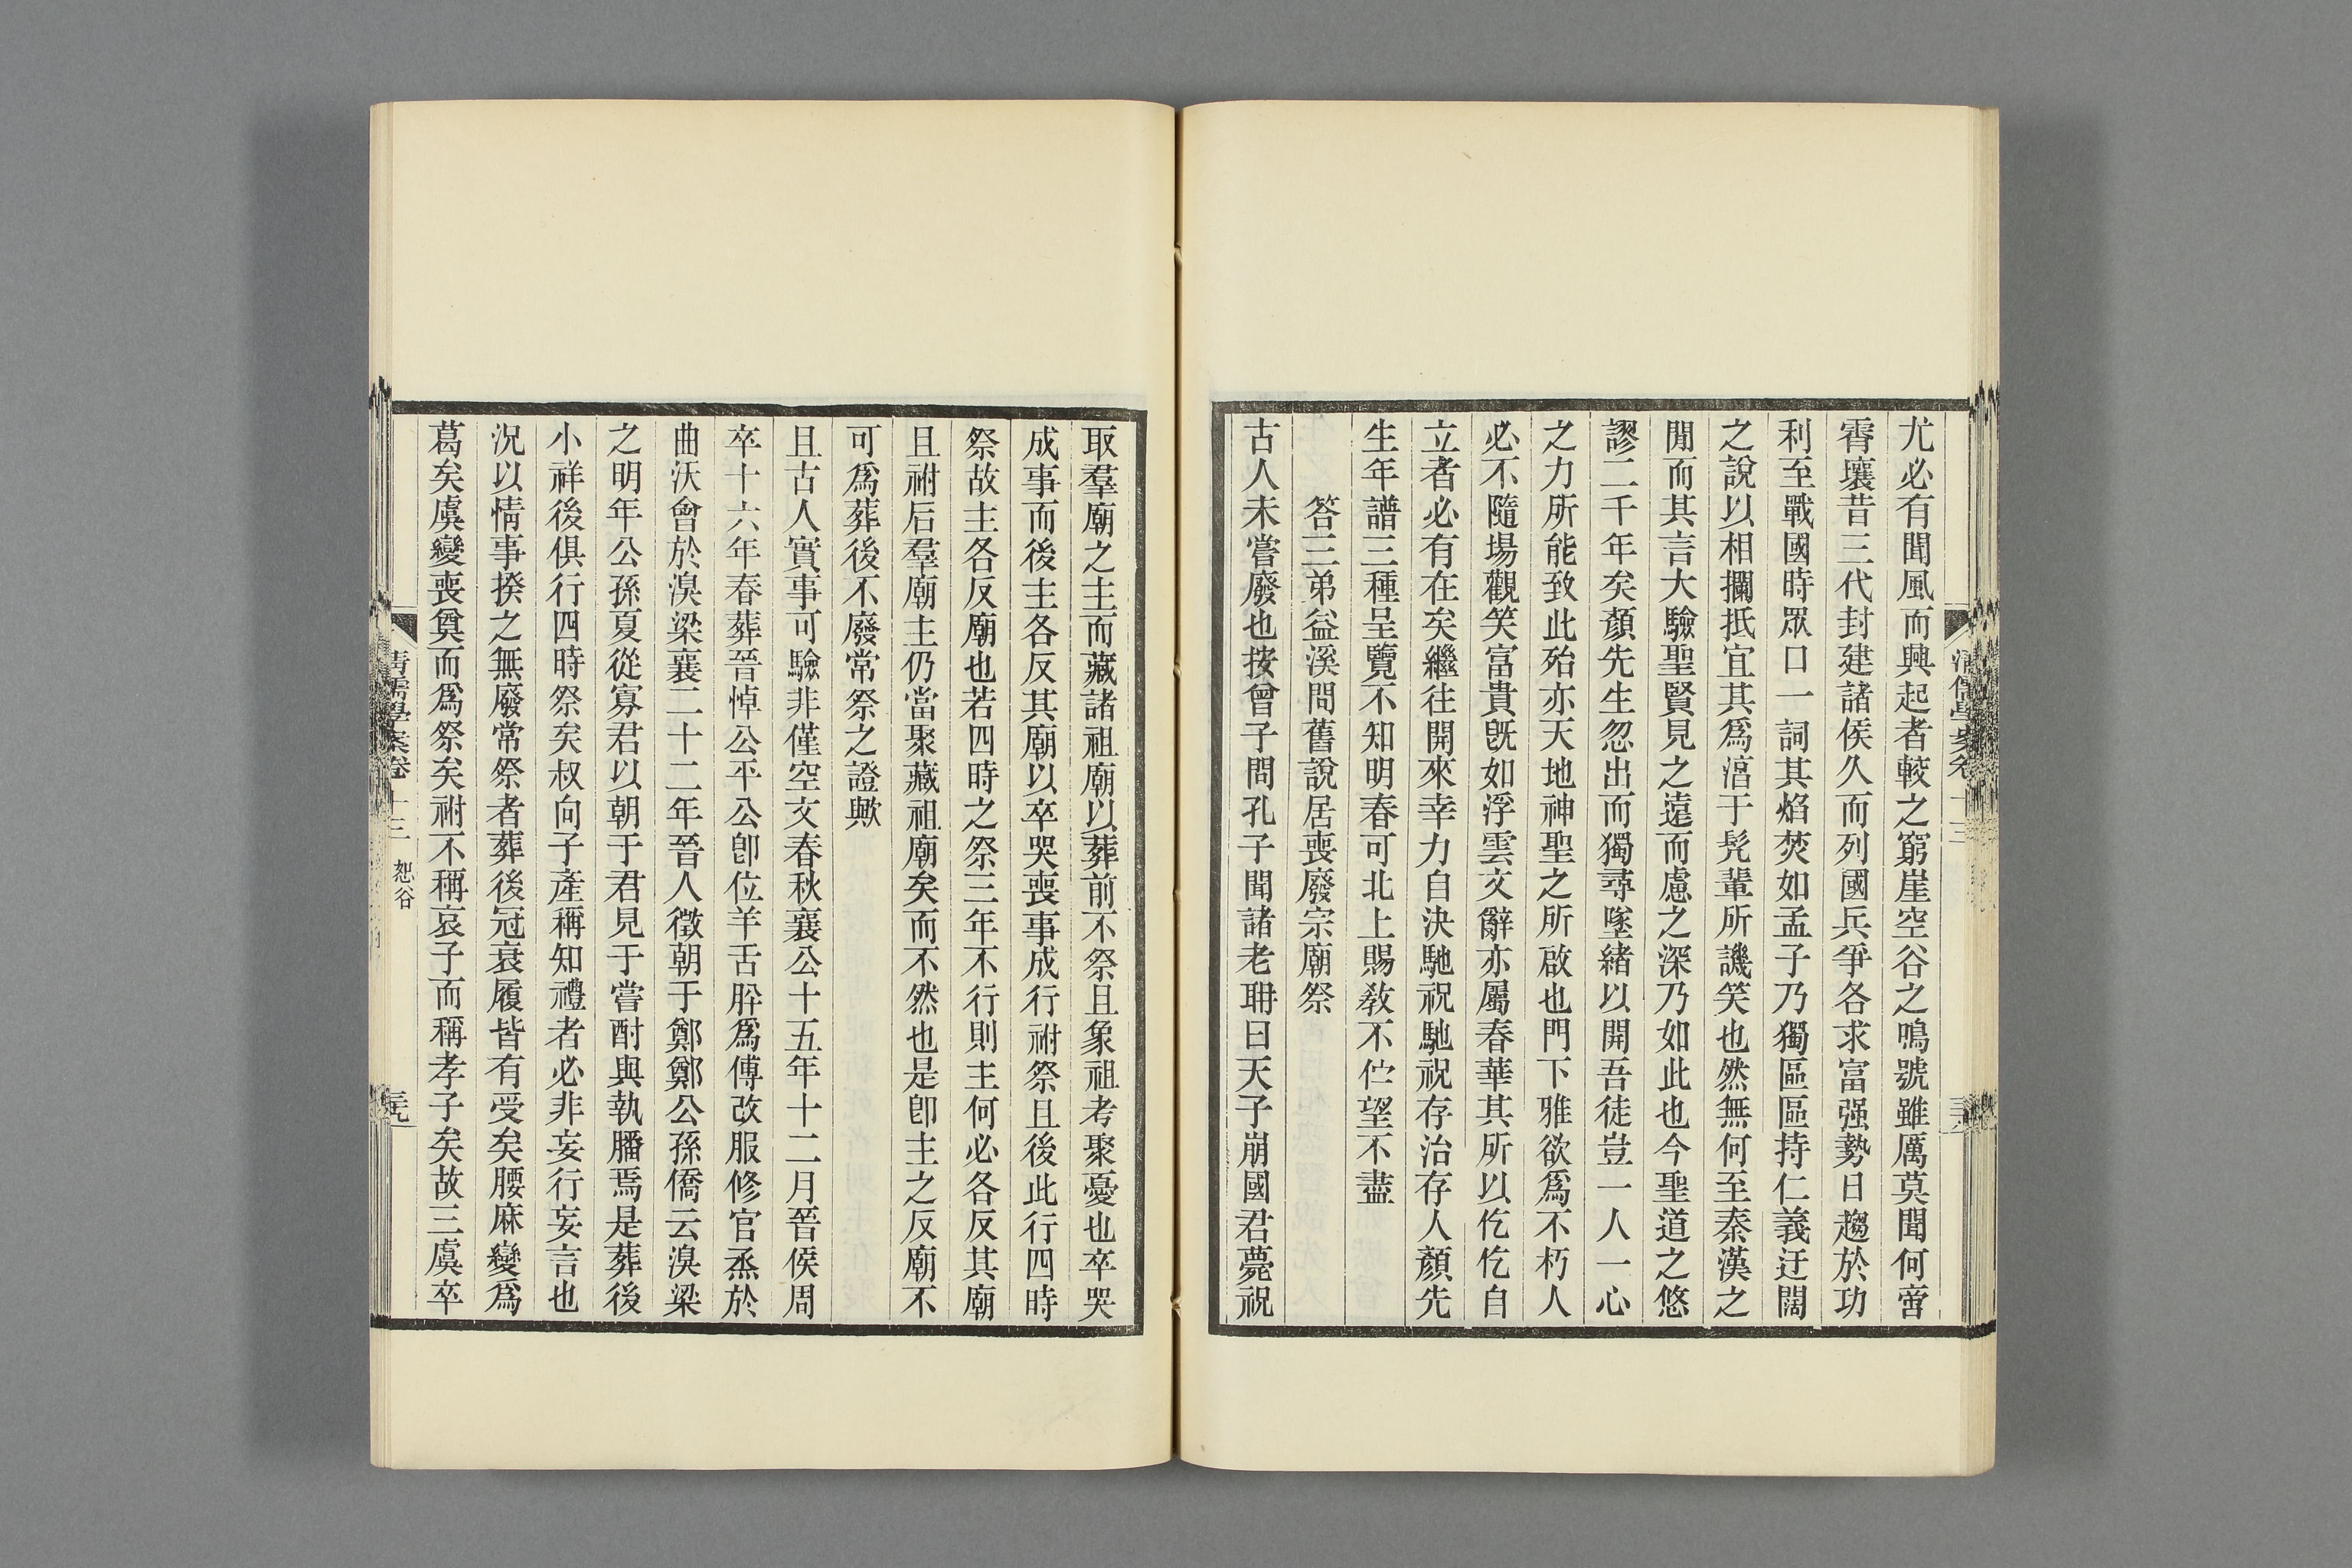 尤必有聞風而興起者較之窮崖空谷之鳴號雖厲莫聞何啻
霄壤昔三代封建諸侯久而列國兵爭各求富强勢日趨於功
利至戰國時眾口一詞其焰焚如孟子乃獨區區持仁義迂闊
之說以相攔抵宜其爲滔于髠輩所譏笑也然無何至秦漢之
閒而其言大驗聖賢見之遠而慮之深乃如此也今聖道之悠
謬二千年矣顏先生忽出而獨尋墜緒以開吾徒豈一人一心
之力所能致此殆亦天地神聖之所啟也門下雅欲爲不朽人
必不隨場觀笑富貴旣如浮雲文辭亦屬春華其所以仡仡自
立者必有在矣繼往開來幸力自決馳祝馳祝存治存人顏先
生年譜三種呈覽不知明春可北上賜敎不伫望不盡
答三弟益溪問舊說居喪廢宗廟祭
古人未嘗廢也按曾子問孔子聞諸老聃曰天子崩國君薨祝
清儒學案卷十三
取羣廟之主而藏諸祖廟以葬前不祭且象祖考聚憂也卒哭
成事而後主各反其廟以卒哭喪事成行祔祭且後此行四時
祭故主各反廟也若四時之祭三年不行則主何必各反其廟
且祔后羣廟主仍當聚藏祖廟矣而不然也是卽主之反廟不
可爲葬後不廢常祭之證歟
且古人實事可驗非僅空文春秋襄公十五年十二月晉侯周
卒十六年春葬晉悼公平公卽位羊舌肸爲傅改服修官烝於
曲沃會於溴梁襄二十二年晉人徵朝于鄭鄭公孫僑云溴梁
之明年公孫夏從寡君以朝于君見于嘗酎與執膰焉是葬後
小祥後俱行四時祭矣叔向子產稱知禮者必非妄行妄言也
況以情事揆之無廢常祭者葬後冠衰履皆有受矣腰麻變爲
葛矣虞變喪奠而爲祭矣祔不稱哀子而稱孝子矣故三虞卒
清儒學案卷十三 恕谷